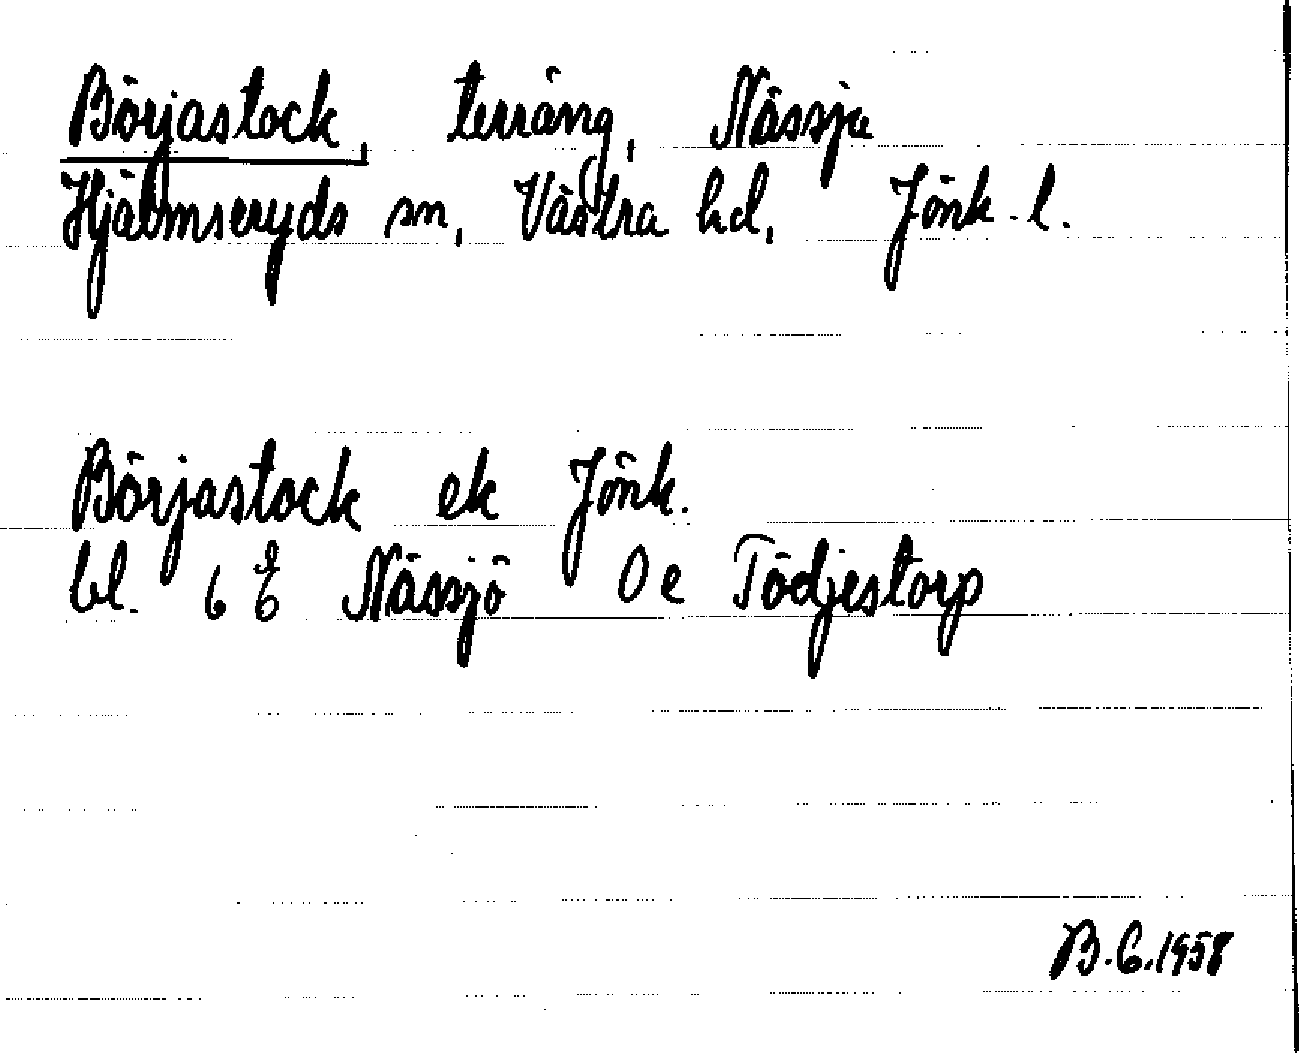 Börjastock, terräng, Nässja
Hjälmseryds sn, Västra hd, Jönk. l.
Börjastock ek Jönk.
bl. 6 Nässjö 0e Tödjestorp
B.G.1958